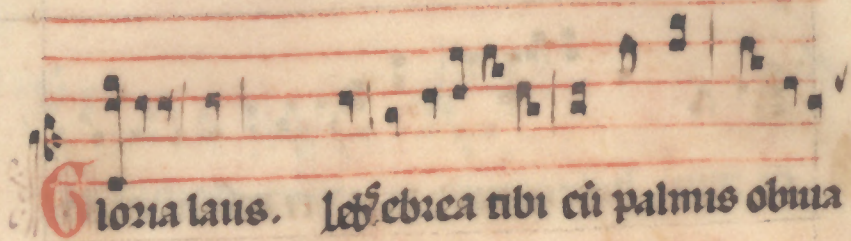 Gloria laus. plebs ebrea tibi cū palmis obuia